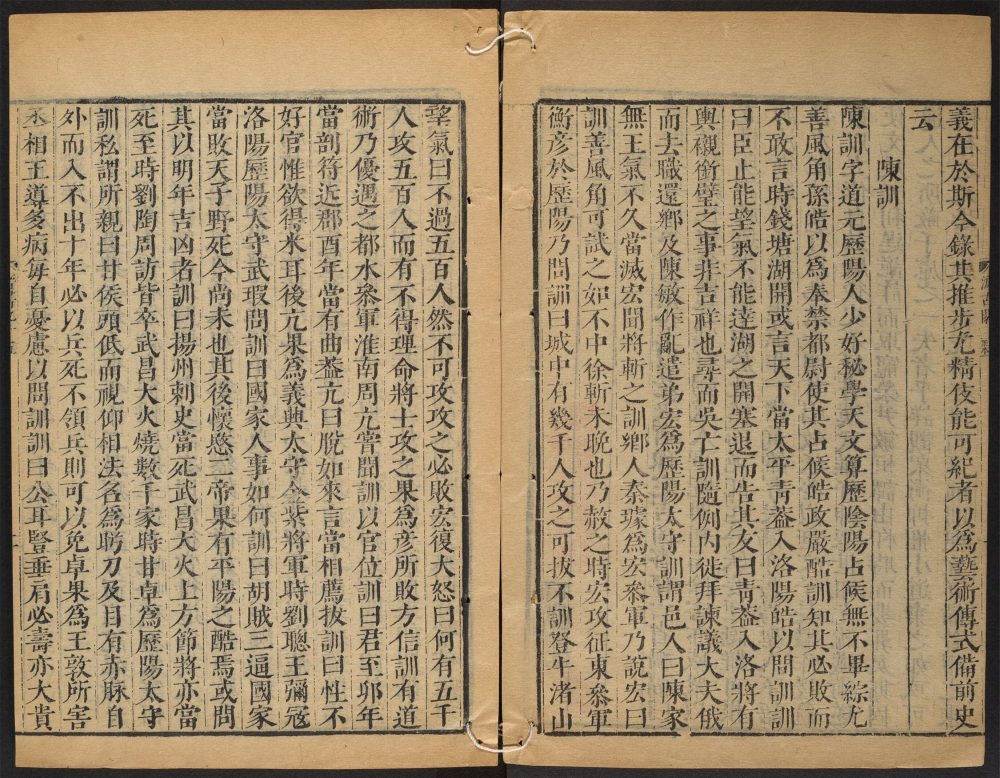 義在於斯今錄其推步尤精伎能可紀者以爲藝術傳式備前史
云
陳訓
陳訓字道元歷陽人少好秘學天文算歷陰陽占候無不畢綜尤
善風角孫皓以爲奉禁都尉使其占候皓政嚴酷訓知其必敗而
不敢言時錢塘湖開或言天下當太平青蓋入洛陽皓以問訓訓
曰臣止能望氣不能達湖之開塞退而告其友曰青蓋入洛將有
輿櫬銜璧之事非吉祥也尋而吳亡訓隨例內徙拜諫議大夫俄
而去職還鄉及陳敏作亂遣弟宏爲歷陽太守訓謂邑人曰陳家
無王氣不久當滅宏聞將斬之訓鄉人秦璩爲宏叅軍乃說宏曰
訓善風角可試之如不中徐斬未晚也乃赦之時宏攻征東叅軍
衡彥於歷陽乃問訓曰城中有幾千人攻之可拔不訓登牛渚山
望氣曰不過五百人然不可攻攻之必敗宏復大怒曰何有五千
人攻五百人而有不得理命將士攻之果爲彥所敗方信訓有道
術乃優遇之都水叅軍淮南周亢嘗問訓以官位訓曰君至卯年
當剖符近郡酉年當有曲蓋亢曰脫如來言當相薦拔訓曰性不
好官惟欲得米耳後亢果爲義興太守金紫將軍時劉聰王彌寇
洛陽歷陽太守武瑕問訓曰國家人事如何訓曰胡賊三逼國家
當敗天子野死今尚未也其後懷愍二帝果有平陽之酷焉或問
其以明年吉凶者訓曰揚州刺史當死武昌大火上方節將亦當
死至時劉陶周訪皆卒武昌大火燒數千家時甘卓爲歷陽太守
訓私謂所親曰甘侯頭低而視仰相法名爲盻刀及目有赤脉自
外而入不出十年必以兵死不領兵則可以免卓果爲王敦所害
丞相王導多病每自憂慮以問訓訓曰公耳豎垂肩必壽亦大貴